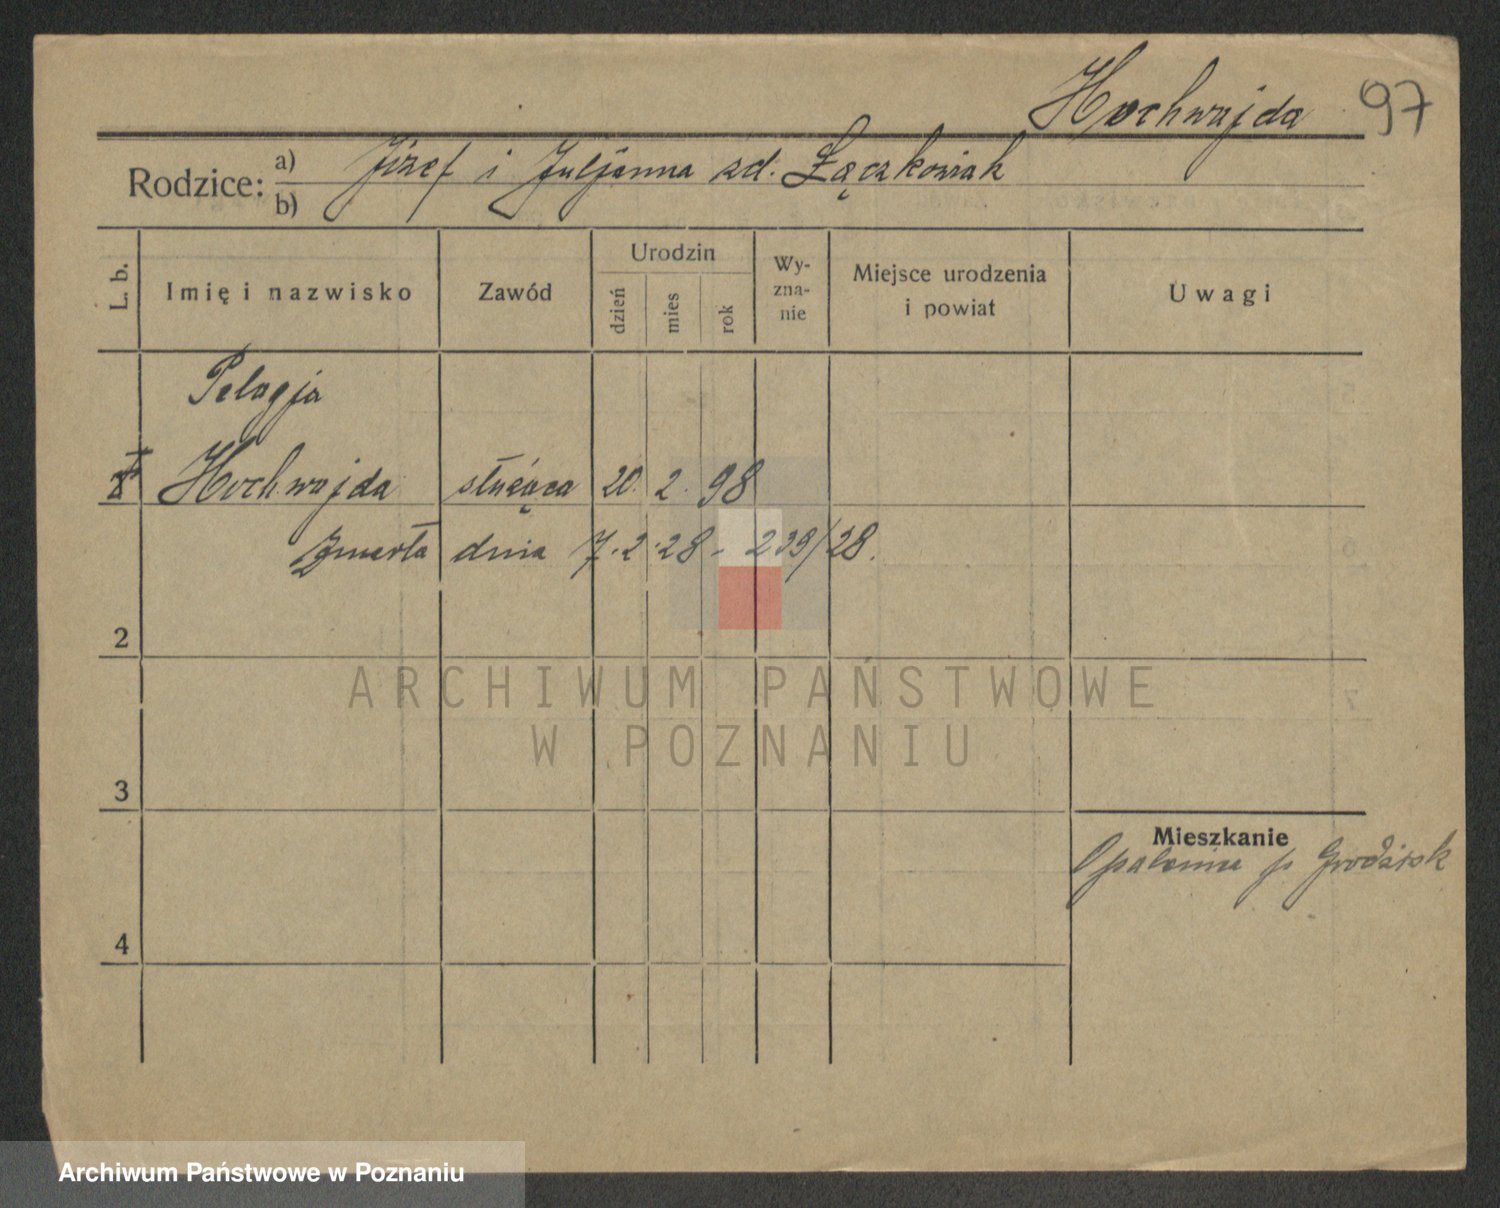 Hochwajda 97
Rodzice: a) Józef i Juljanna zd. Łączkowiak
b)
L. b. Imię i nazwisko Zawód Urodzin dzień mies rok Wy-zna-nie Miejsce urodzenia i powiat Uwagi
Pelagja
Hochwajda służąca 20. 2. 98
Zmarła dnia 7.2.28 - 239/28.
2
ARCHIWUM PAŃSTWOWE
W POZNANIU
3
Mieszkanie
Opalenica p. Grodzisk
4
Archiwum Państwowe w Poznaniu